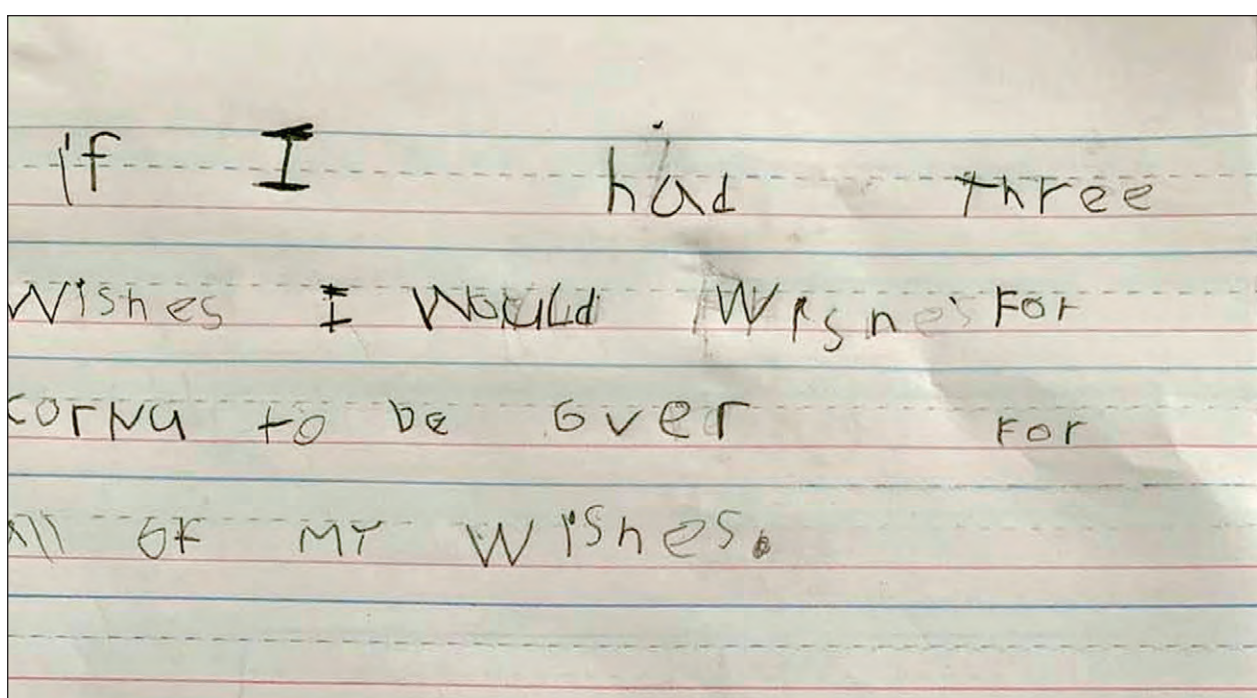 if I had three
Wishes I Would Wishe For
cornu to be over For
All of my Wishes.